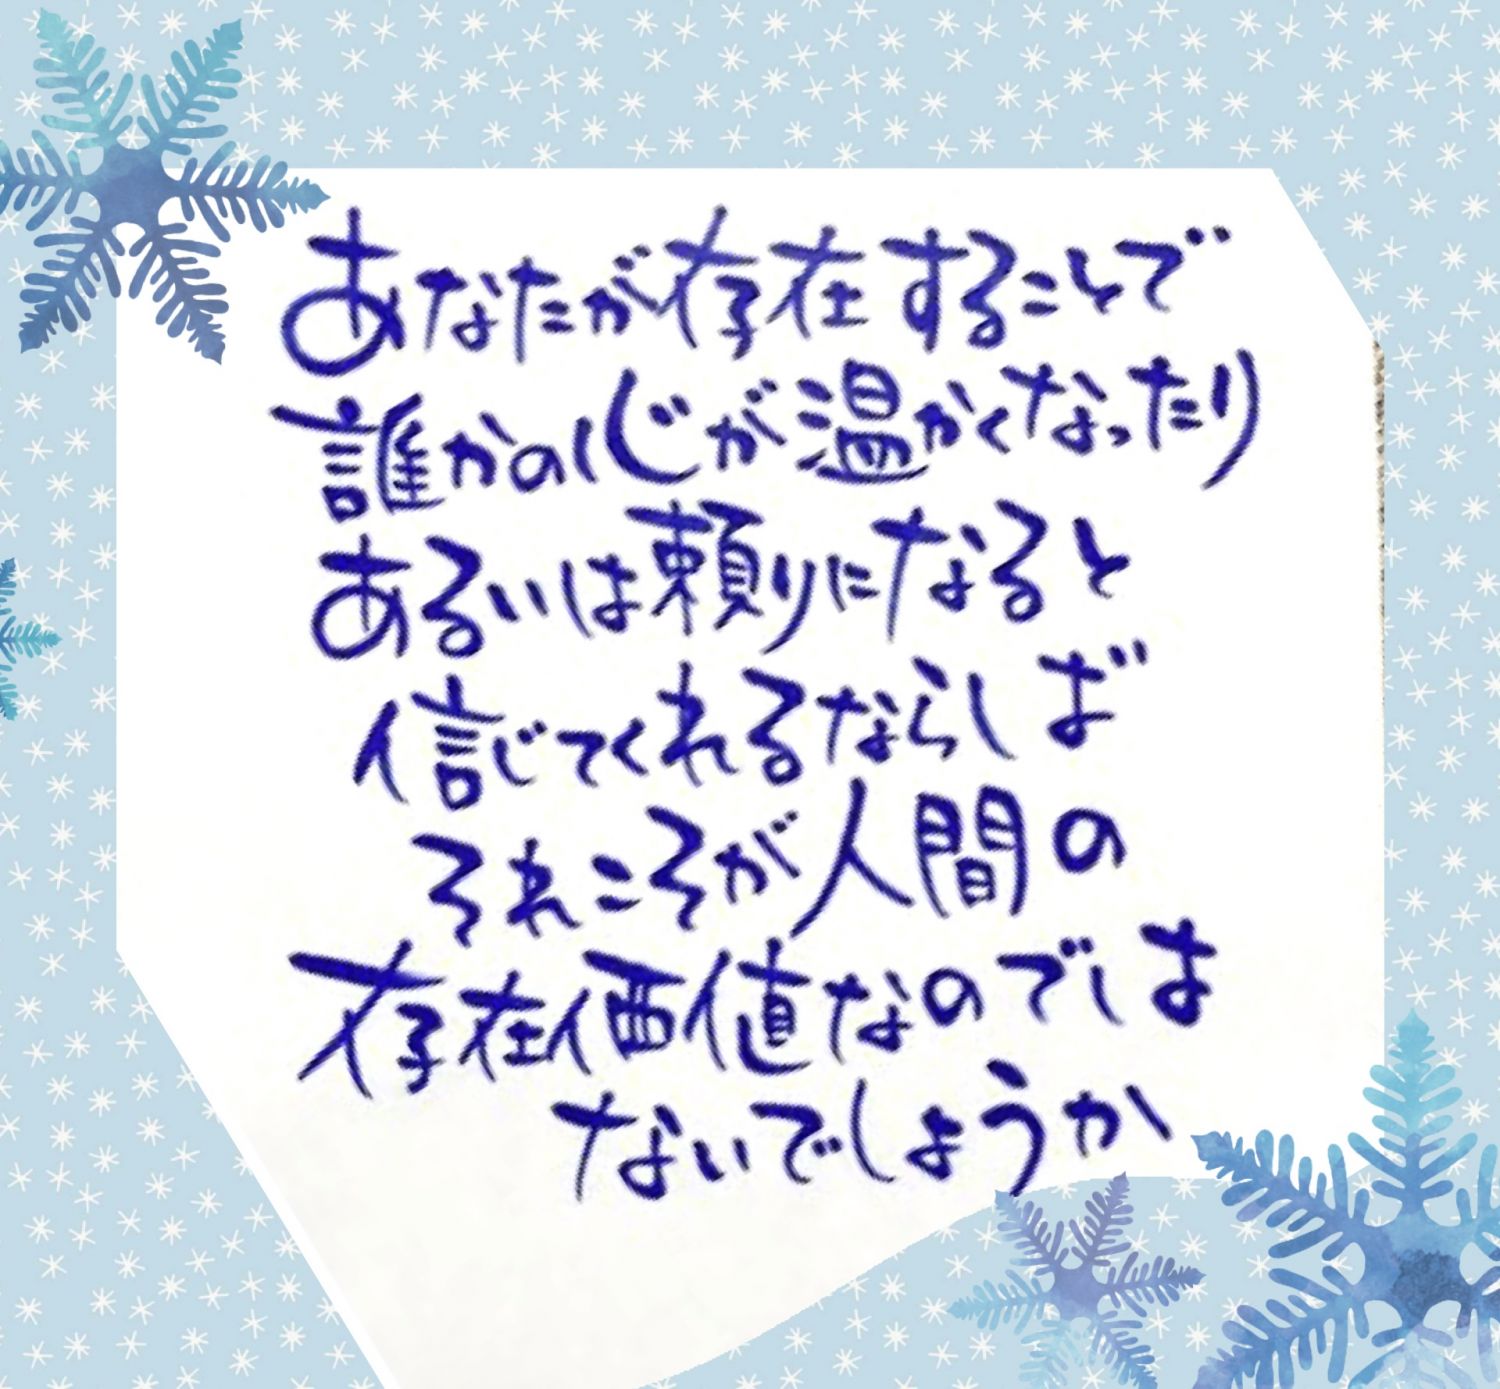 あなたが存在することで
誰かの心が温かくなったり
あるいは頼りになると
信じてくれるならば
それこそが人間の
存在価値なのでは
ないでしょうか